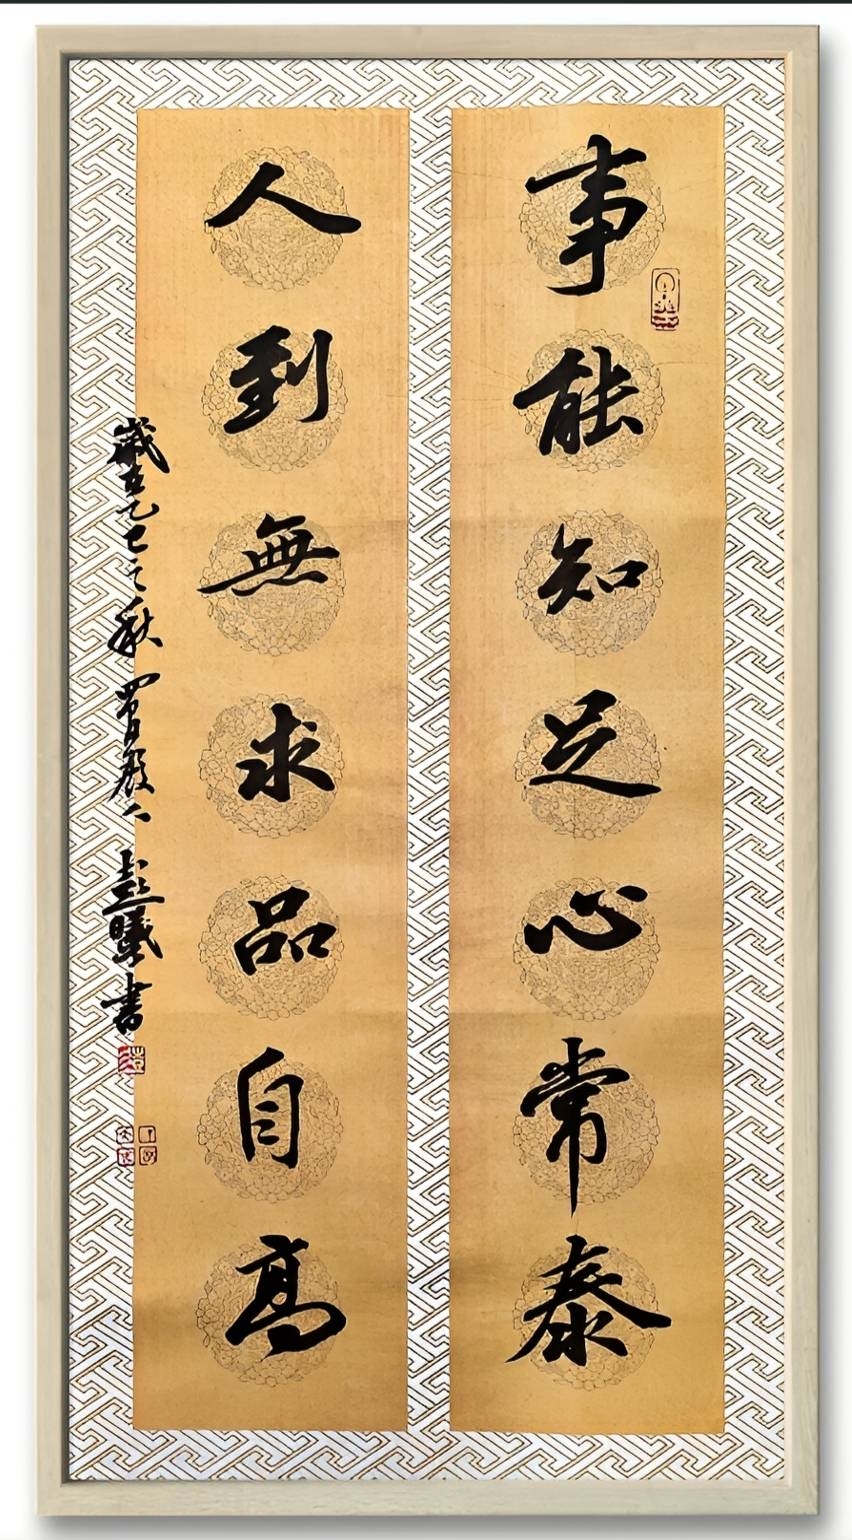 事能知足心常泰
人到無求品自高
歲在乙巳之秋
書